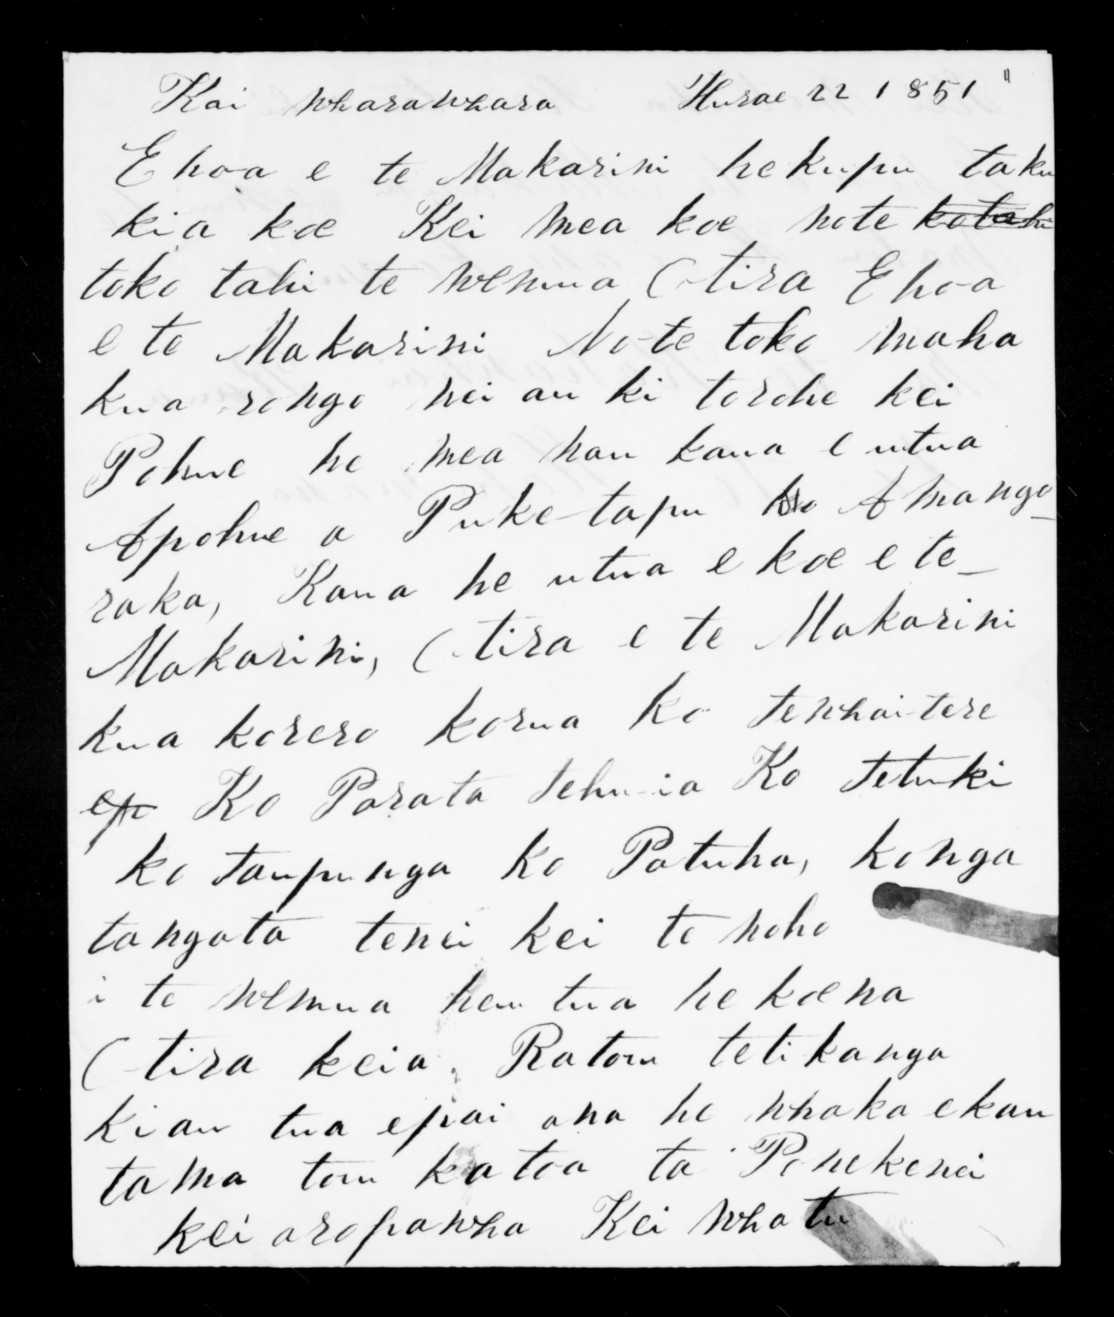 Kai wharawhara Hurae 22 1851"
E hoa e te Makarini he kupu taku
kia koe Kei mea koe no te kotahi
toko tahi te wenua (tira E hoa
e te Makarini No te toko maha
kua rongo nei au ki torohe kei
Pohue he mea nau kaua e utua
Apohue a Puke-tapu ko Amango_
raka, Kaua he utua e koe e te_
Makarini, (tira e te Makarini
kua korero korua ko tewhai-tere
Ko Porata tehu-ia Ko Tetuki
ko Taupunga ko Patuha, ko nga
tangata tenei kei te noho
i te wenua heu tua he koena
(tira keia, Ratou te ti kanga
ki au tua epai ana he whaka ekau
ta ma tou katoa ta Ponekenei
kei aropawha Kei Whatu